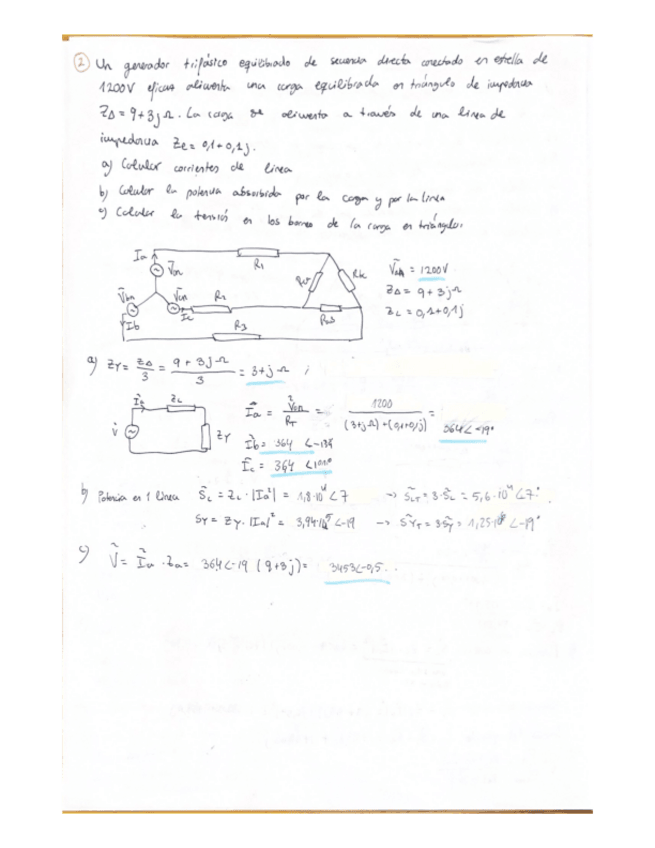 2 Un generador trifásico equilibrado de secuencia directa conectado en estella de
1200V eficaz alimenta una carga equilibrada en triángulo de impedancia
ZΔ = 9+3j Ω. La carga se alimenta a través de una línea de
impedancia Ze = 0,1+0,1j.
a) Calcular corrientes de línea
b) Calcular la potencia absorbida por la carga y por la línea
c) Calcular la tensión en los bornes de la carga en triángulo.
Ia R1
Van
Vbn Vcn R2
Ib Ic R3
= 1200V
ZΔ = 9+3jΩ
ZL = 0,1+0,1j
a) ZY = ZΔ/3 = 9+3jΩ/3 = 3+jΩ ;
Ia ZL
V ZY
Ia = Van/RT = 1200/((3+jΩ)+(0,1+0,1j)) = 364∠-19°
Ib = 364
Ic = 364
b) Potencia en 1 línea SL = ZL·|Ia²| = 1,8·10⁴∠7 → SLT = 3·SL = 5,6·10⁴∠7°.
SY = ZY·|Ia|² = ∠-19 → SYT = 3SY = ∠-19°
c) V = Ia · = 364∠-19 (9+3j) = 3453∠-0,5..